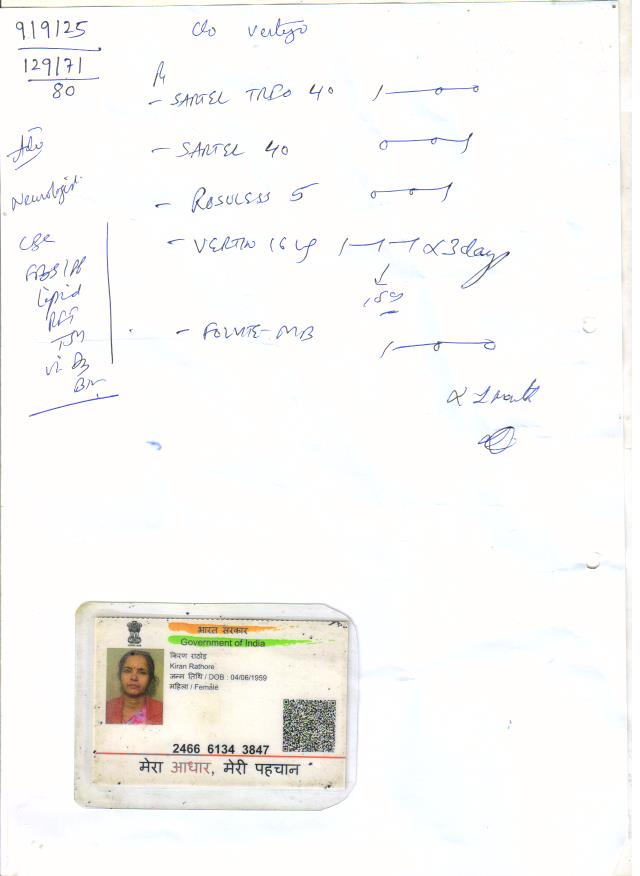 9/9/25
c/o vertigo
129/71
80
Rx
- SARTEL TRIO 40 1—0—0
Adv
- SARTEL 40 0—0—1
Neurologist
- ROSULESS 5 0—0—1
CBC
- VERTIN 16 1—1—1 x 3 days
FBS/PP
Lipid
RFT
TSH
- FOLVITE-MB 1—0—0
vit D3
B12
x 1 month
भारत सरकार
Government of India
किरण राठोड
Kiran Rathore
जन्म तिथि / DOB : 04/06/1959
महिला / Female
2466 6134 3847
मेरा आधार, मेरी पहचान